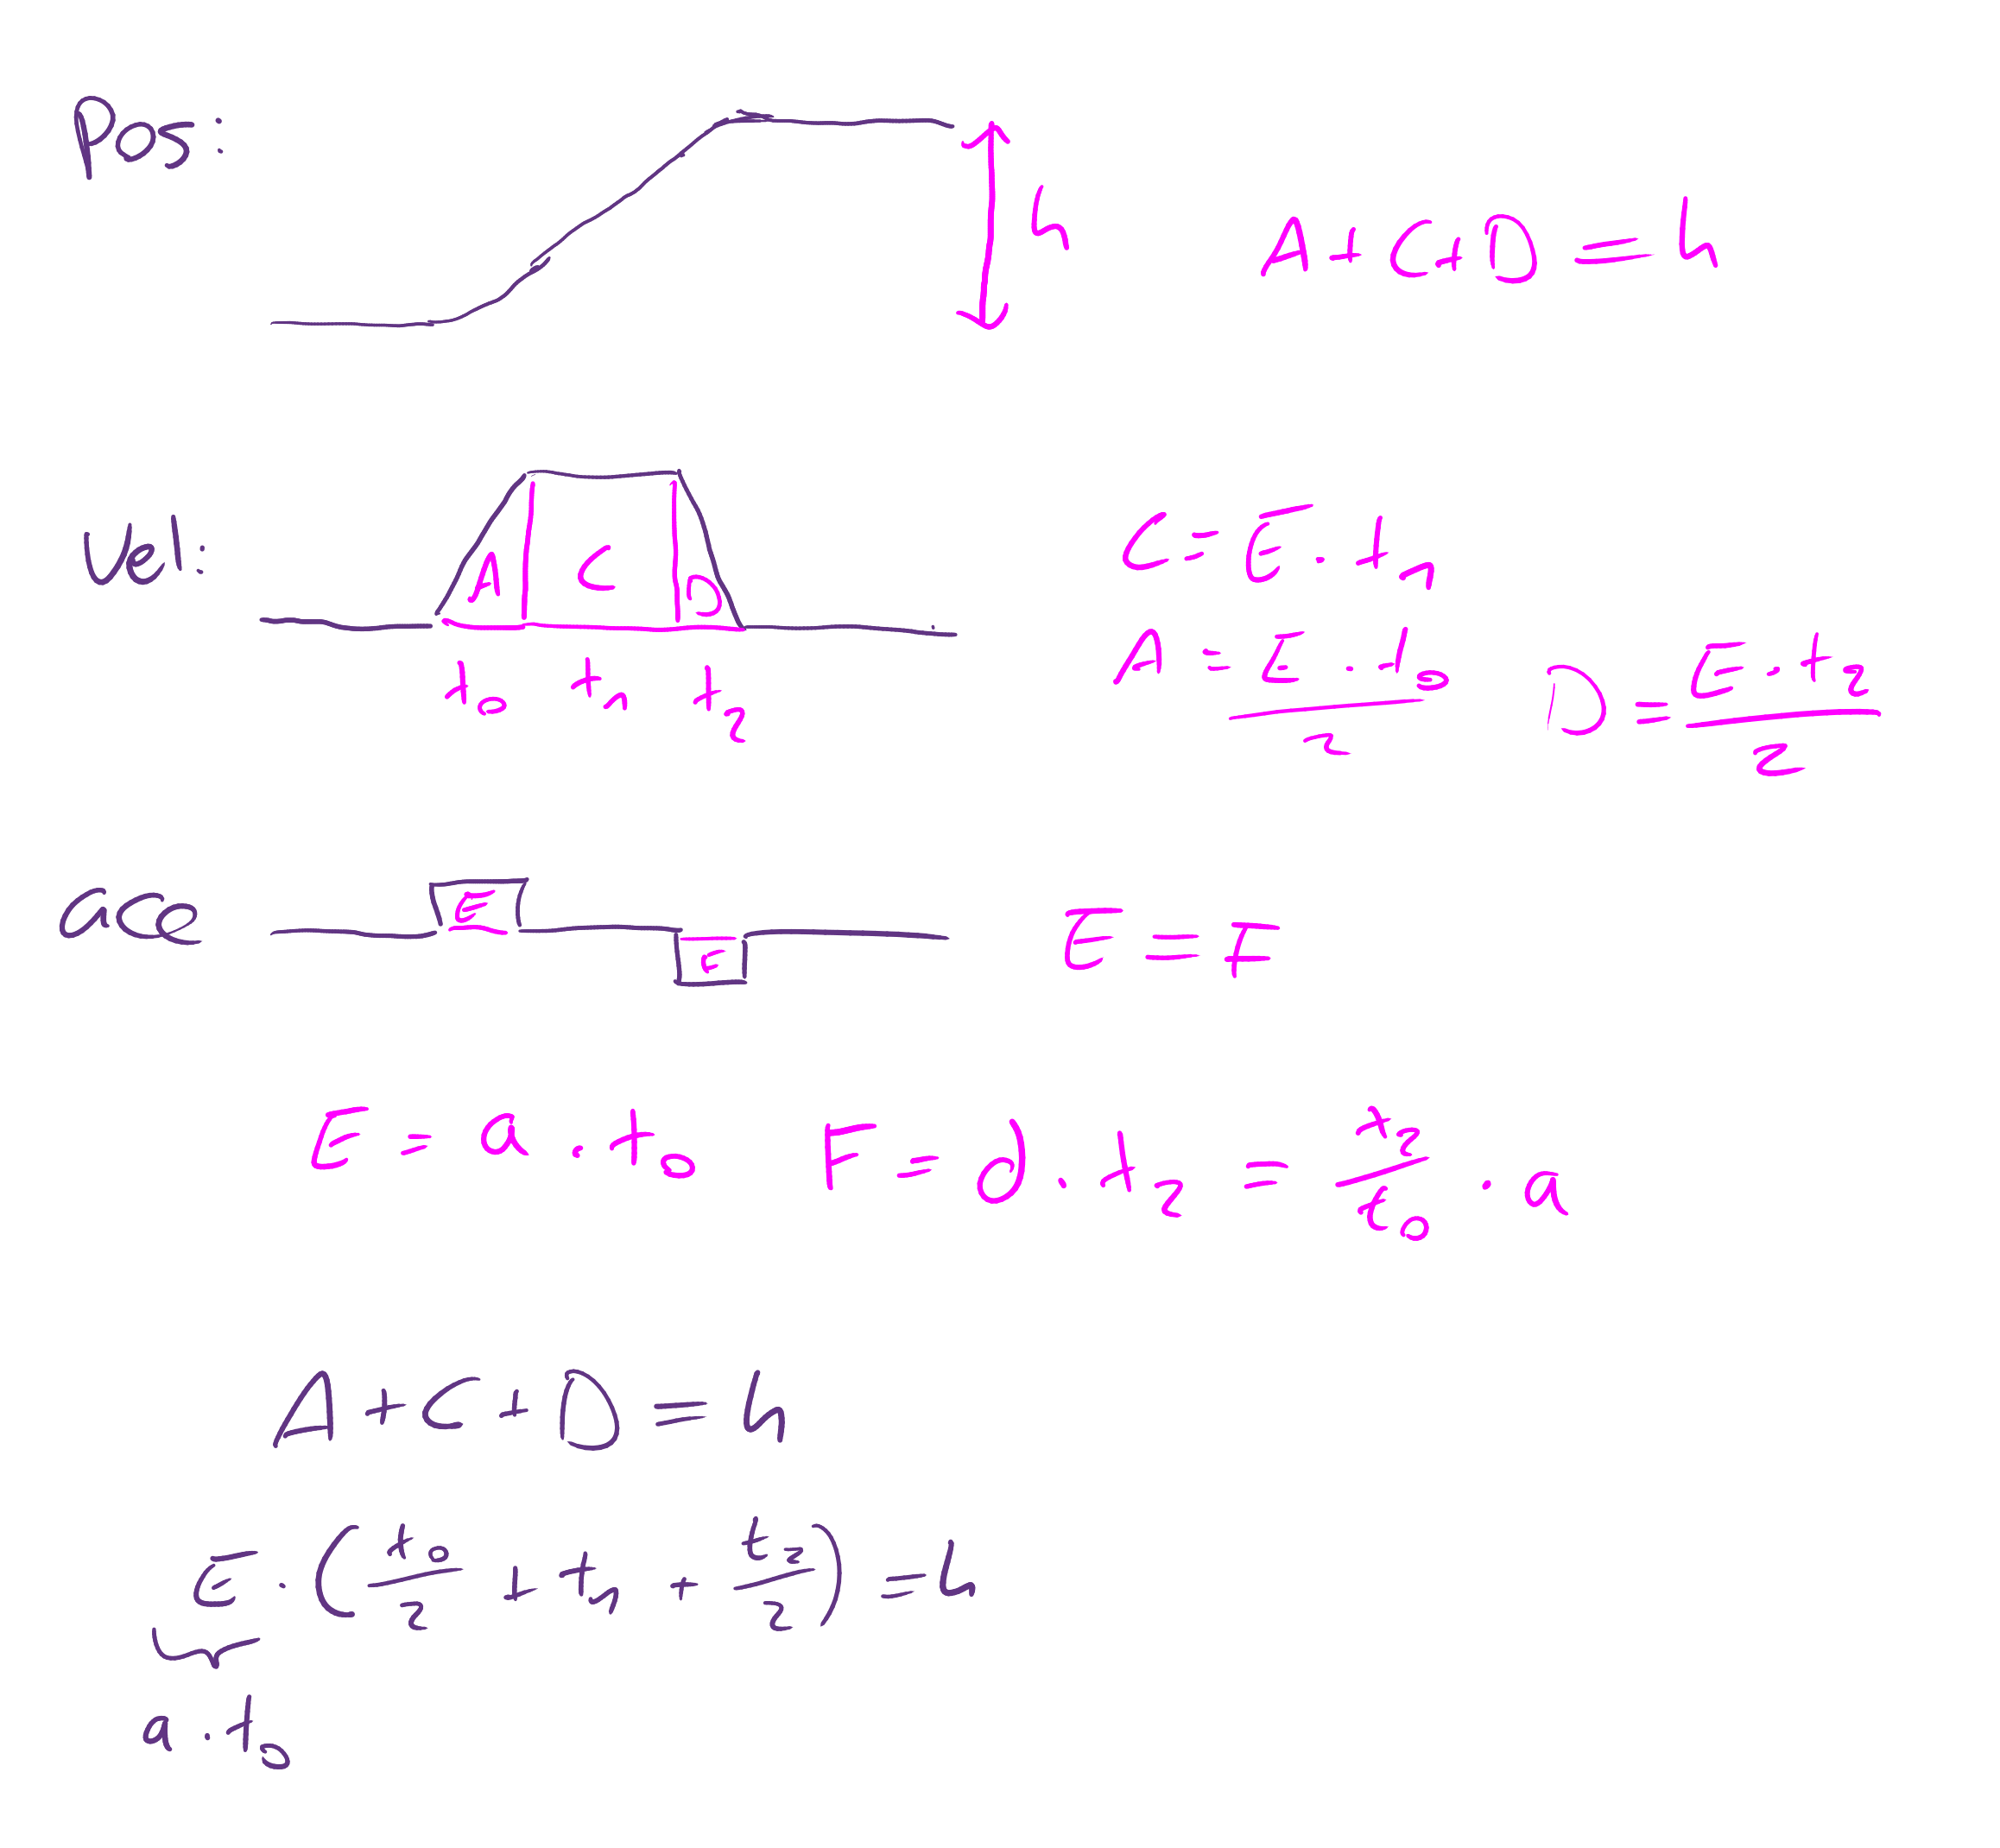 Pos:
h
A + C + D = h
Vel:
A C D
t₀ t₁ t₂
C = E · t₁
A = E · t₀ / 2
D = E · t₂ / 2
acc
E
E
E = F
E = a · t₀
F = d · t₂ = t₂ / t₀ · a
A + C + D = h
E · (t₀ / 2 + t₁ + t₂ / 2) = h
a · t₀